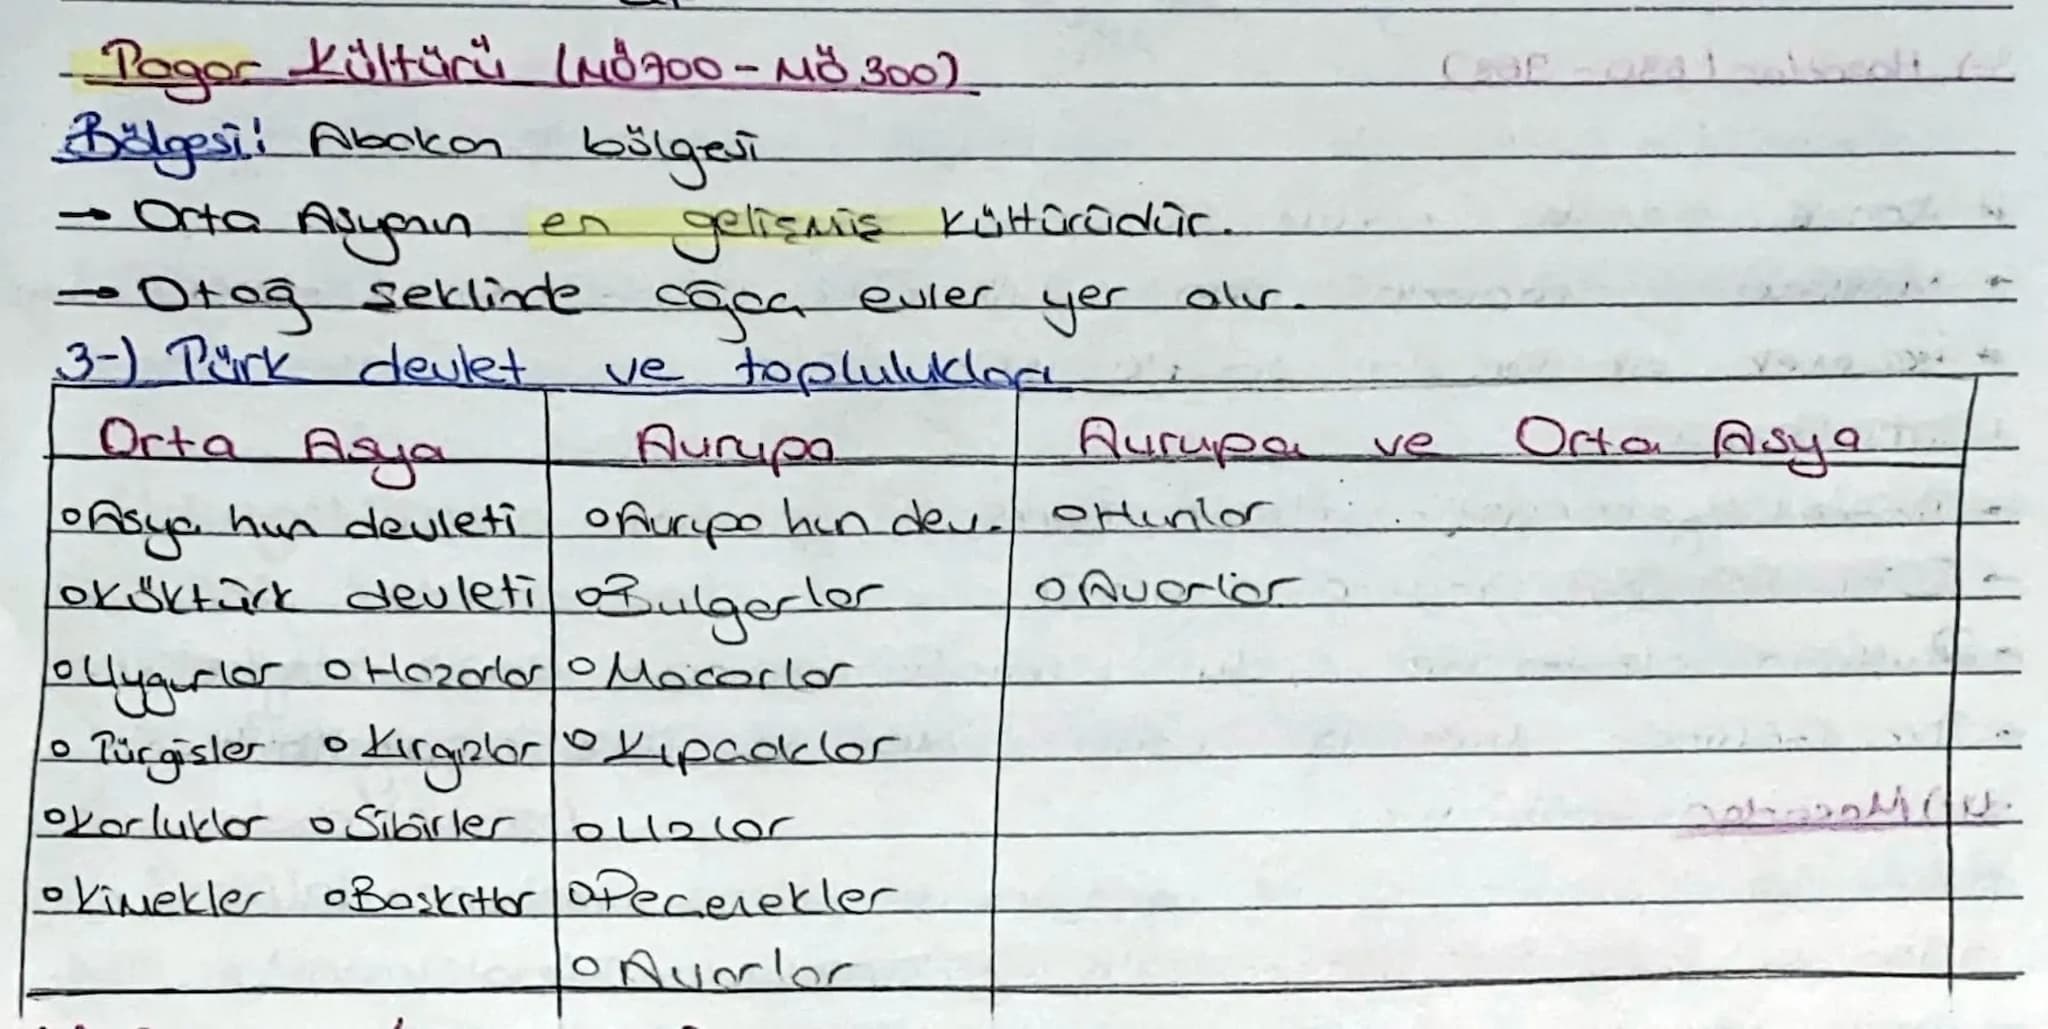 Tagar Kültürü (MÖ700 - MÖ 300)
Bölgesi: Abakan bölgesi
→ Orta Asyanın en gelişmiş kültürüdür.
→ Otağ seklinde ağaç evler yer alır.
3-) Türk devlet ve toplulukları
Orta Asya Avrupa Avrupa ve Orta Asya
o Asya hun devleti o Avrupa hun dev. o Hunlar
o Köktürk devleti o Bulgarlar o Avarlar
o Uygurlar o Hazarlar o Macarlar
o Türgisler o Kırgızlar o Kıpcaklar
o Karluklar o Sibirler o Uzlar
o Kimekler o Başkırtlar o Pecenekler
o Avarlar